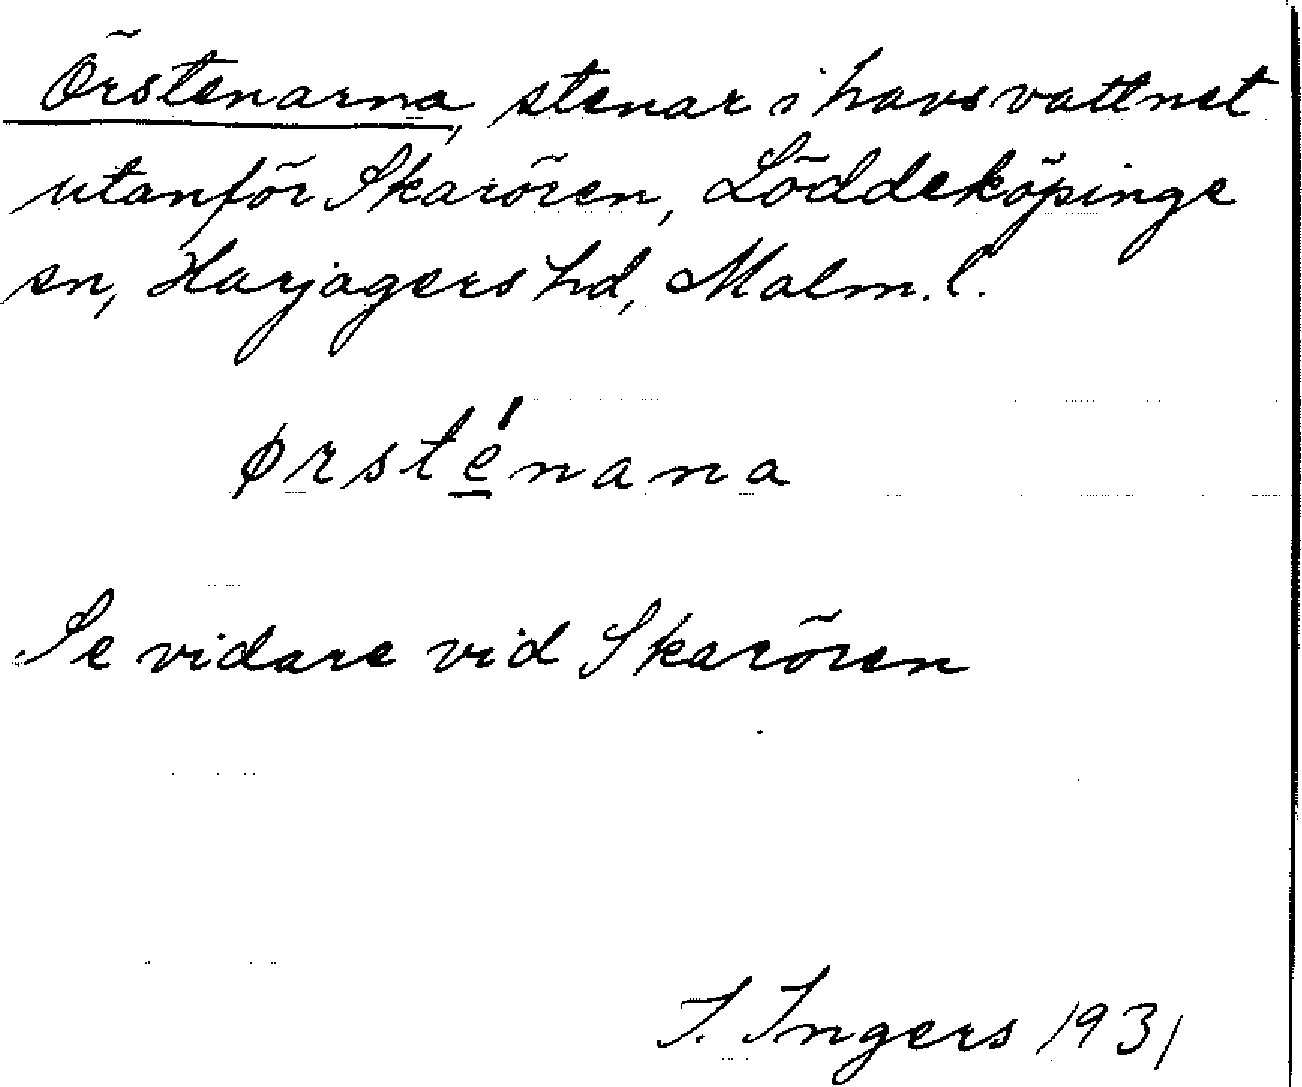 Örstenarna, stenar i havsvattnet
utanför Skarören, Löddeköpinge
sn, Harjagers hd, Malm. l.
ørsté̱nana
Se vidare vid Skarören
I. Ingers 1931